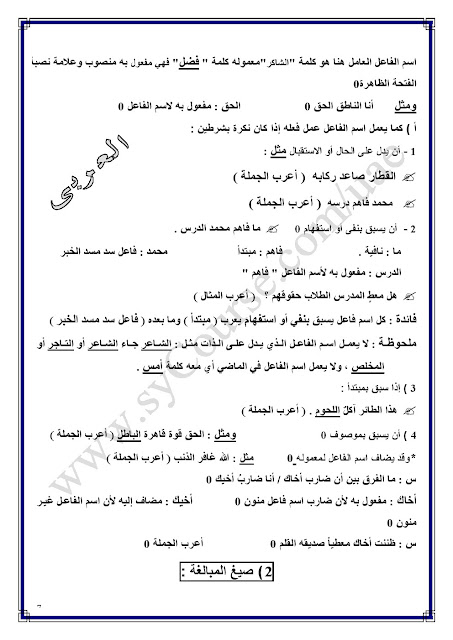 اسم الفاعل العامل هنا هو كلمة "الشاكر"معموله كلمة " فضل" فهي مفعول به منصوب وعلامة نصبة
الفتحة الظاهرة0
ومثل أنا الناطق الحق 0 الحق : مفعول به لاسم الفاعل 0
أ ) كما يعمل اسم الفاعل عمل فعله إذا كان نكرة بشرطين :
1 - أن يدل على الحال أو الاستقبال مثل :
القطار صاعد ركابه ( أعرب الجملة )
محمد فاهم درسه ( أعرب الجملة )
2 - أن يسبق بنفي أو استفهام 0 ما فاهم محمد الدرس .
ما : نافية . فاهم : مبتدأ محمد : فاعل سد مسد الخبر
الدرس : مفعول به لأسم الفاعل " فاهم "
هل معطٍ المدرس الطلاب حقوقهم ؟ ( أعرب المثال )
فائدة : كل اسم فاعل يسبق بنفي أو استفهام يعرب ( مبتدأ ) وما بعده ( فاعل سد مسد الخبر )
ملحوظة : لا يعمل اسم الفاعل الذي يدل على الذات مثل : الشاعر جاء الشاعر أو التاجر أو
المخلص ، ولا يعمل اسم الفاعل في الماضي أي معه كلمة أمس .
3 ) إذا سبق بمبتدأ :
هذا الطائر آكلٌ اللحوم . ( أعرب الجملة )
4 ) أن يسبق بموصوف 0 ومثل : الحق قوة قاهرة الباطل ( أعرب الجملة )
*وقد يضاف اسم الفاعل لمعموله 0 مثل : الله غافر الذنب ( أعرب الجملة )
س : ما الفرق بين أن ضارب أخاك / أنا ضاربُ أخيك 0
أخاك : مفعول به لأن ضارب اسم فاعل منون 0 أخيك : مضاف إليه لأن اسم الفاعل غير
منون 0
س : ظننت أخاك معطياً صديقه القلم 0 أعرب الجملة 0
2 ) صيغ المبالغة :
العربي
www.syCourse.com/uae